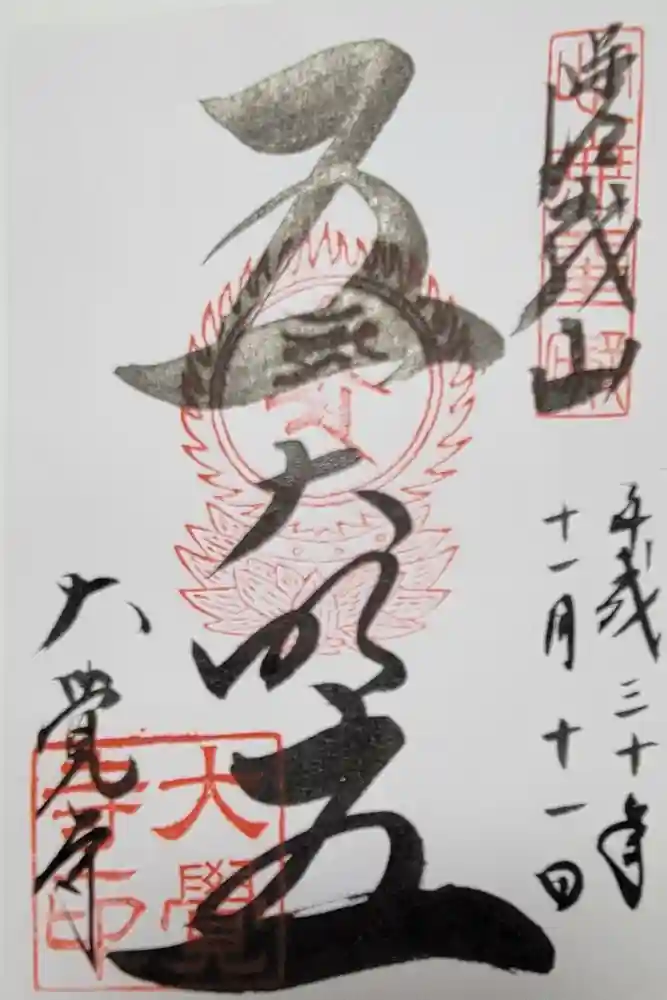 嵯峨山
平成三十年
十一月十一日
五大明王
大覺寺
大覺
寺印